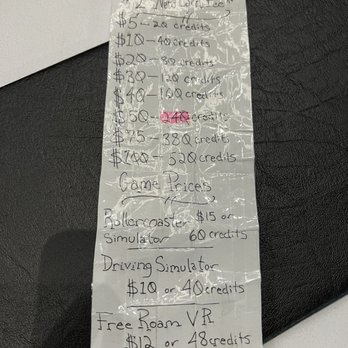 $5-20 credits
$10-40 credits
$20-80 credits
$30-120 credits
$40-160 credits
$50-240 credits
$75-380 credits
$100-520 credits
Game Prices
Rollercoaster $15 or
Simulator 60 credits
Driving Simulator
$10 or 40 credits
Free Roam VR
$12 or 48 credits